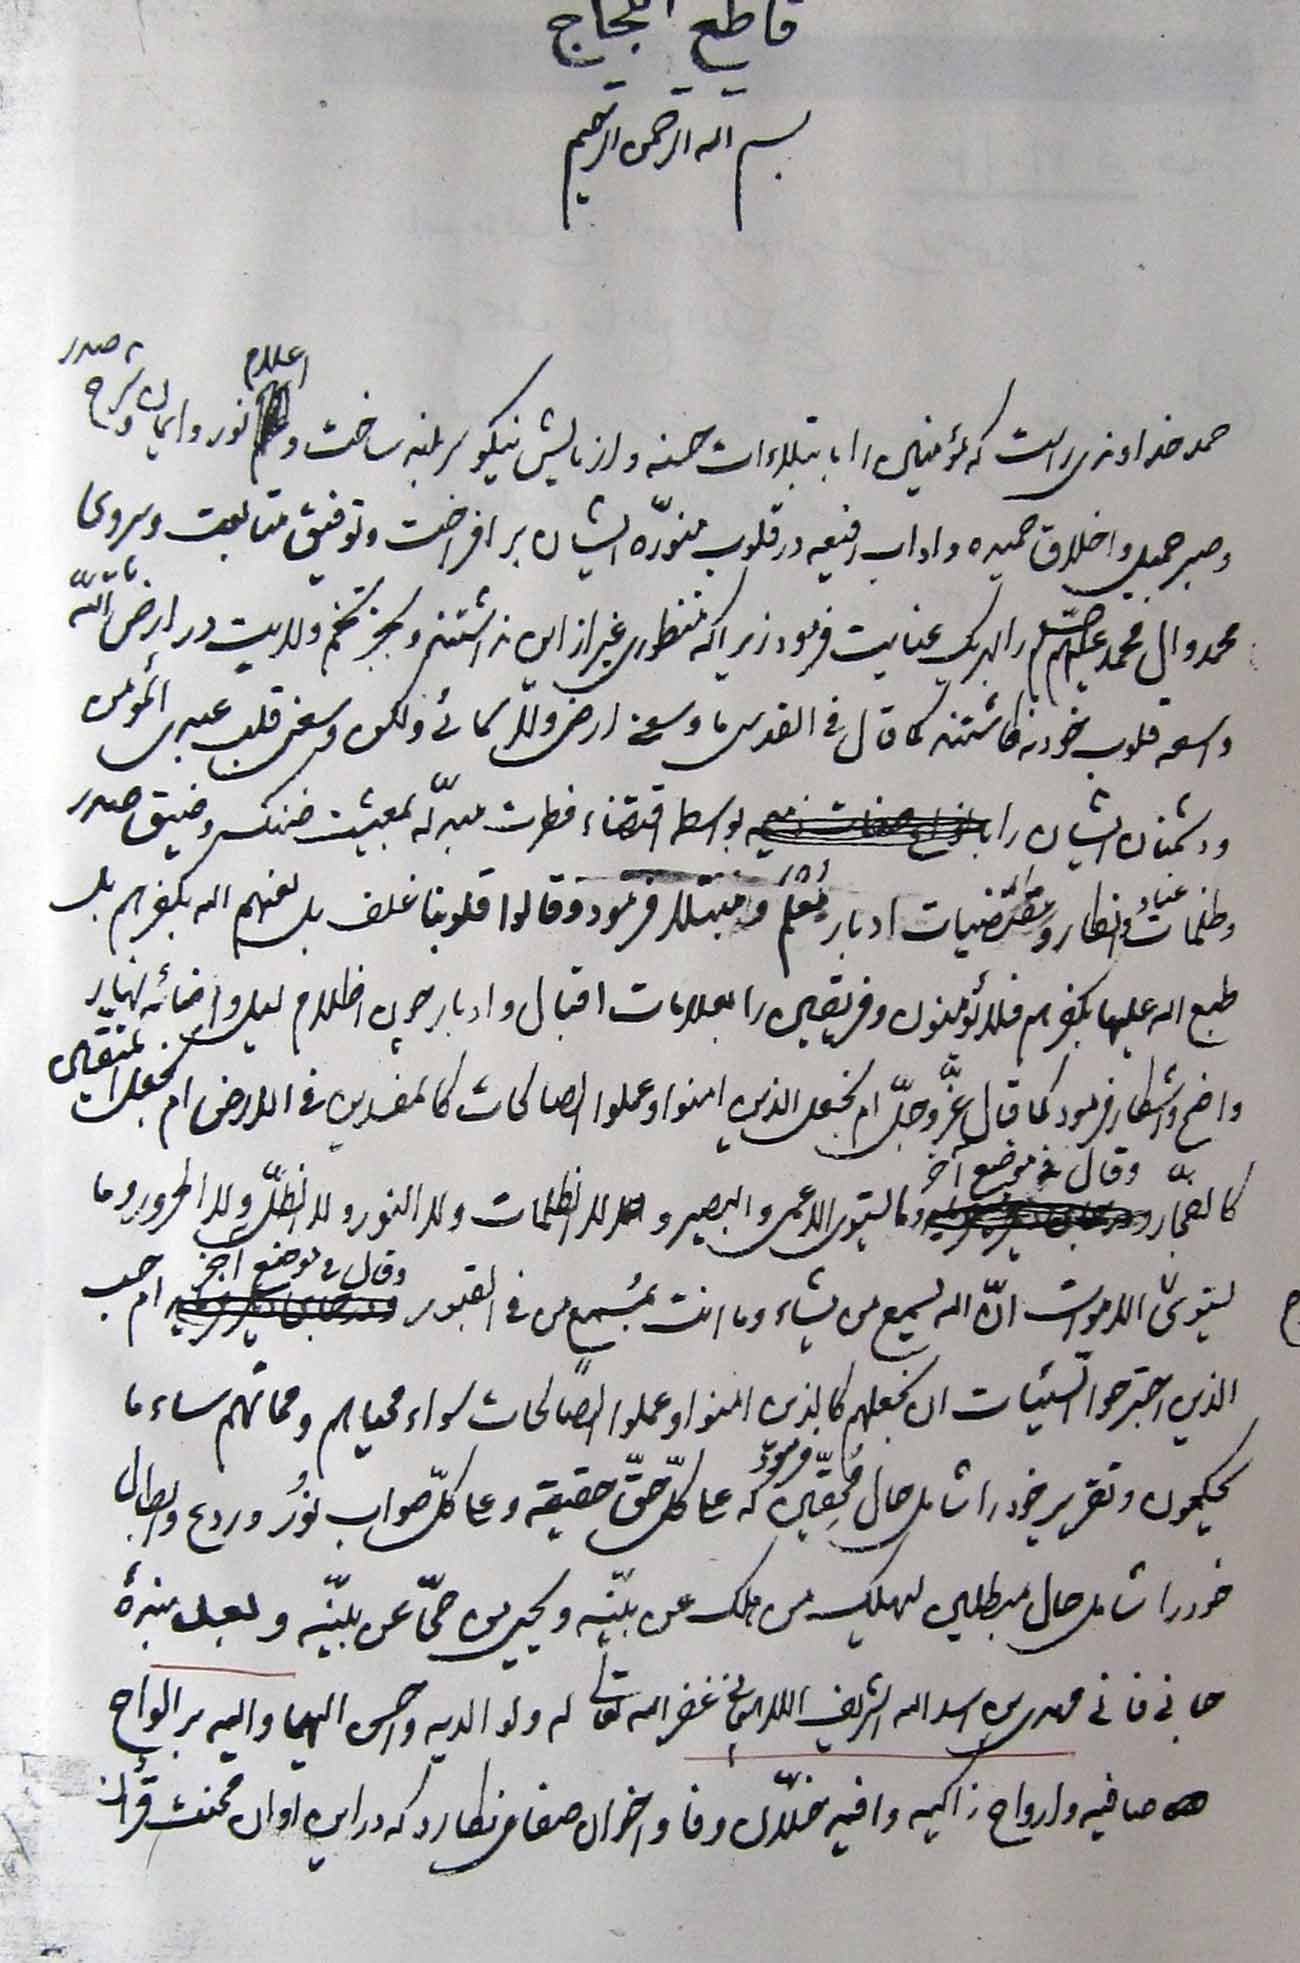 قاطع اللجاج
بسم الله الرحمن الرحیم
حمد خداوندی راست که مؤمنین را بابتلاءات حسنه و ازمایش نیکو سربلند ساخت و اعلام نور و ایمان و شرح صدر
و صبر جمیل و اخلاق حمیده و اداب رفیعه در قلوب منوّره ایشان بر افراخت و توفیق متابعت و پیروی
محمد و ال محمد را عنایت فرمود زیرا که منظوری غیر از این نداشتند و بجز تخم ولایت در ارض الله
واسعه قلوب خود نکاشتند کما قال فی القدسی ما وسعنی ارضی ولا سمائی ولکن وسعنی قلب عبدی المؤمن
و دشمنان ایشان را بواسطه اقتضاء فطرت مبدّله بمعیشت ضنک و ضیق صدر
و ظلمات عناد و انکار و مقتضیات ادبار مبتلا فرمود و قالوا قلوبنا غلف بل لعنهم الله بکفرهم بل
طبع الله علیها بکفرهم فلا یؤمنون و فریقین را بعلامات اقبال و ادبار چون اظلام لیل و اضائه نهار
واضح و اشکار فرمود کما قال عزّ و جلّ ام نجعل الذین امنوا و عملوا الصالحات کالمفسدین فی الارض ام نجعل المتقین
کالفجّار و قال فی موضع آخر و ما یستوی الاعمی و البصیر و لا الظلمات و لا النور و لا الظلّ و لا الحرور و ما
یستوی الاموات انّ الله یسمع من یشاء و ما انت بمُسمع من فی القبور و قال فی موضع آخر ام حسب
الذین اجترحوا السّیّئات ان نجعلهم کالذین امنوا و عملوا الصّالحات سواء محیاهم و مماتهم ساء ما
یحکمون و تقریر خود را شامل حال مُحقّین فرمود که علی کلّ حقّ حقیقة و علی کلّ صواب نورٌ و ردع و ابطال
خود را شامل حال مبطلین لیهلک من هلک عن بیّنه و یحیی من حیّ عن بیّنه و بعد بندهٔ
جانی فانی مهدی بن اسد الله الشریف اللاهیجانی غفر الله تعالی له و لوالدیه و احسن الیهما و الیه بر الواح
صافیه و ارواح زاکیه وافیه خلّان وفا و اخوان صفا می نگارد که در این اوان محنت قران